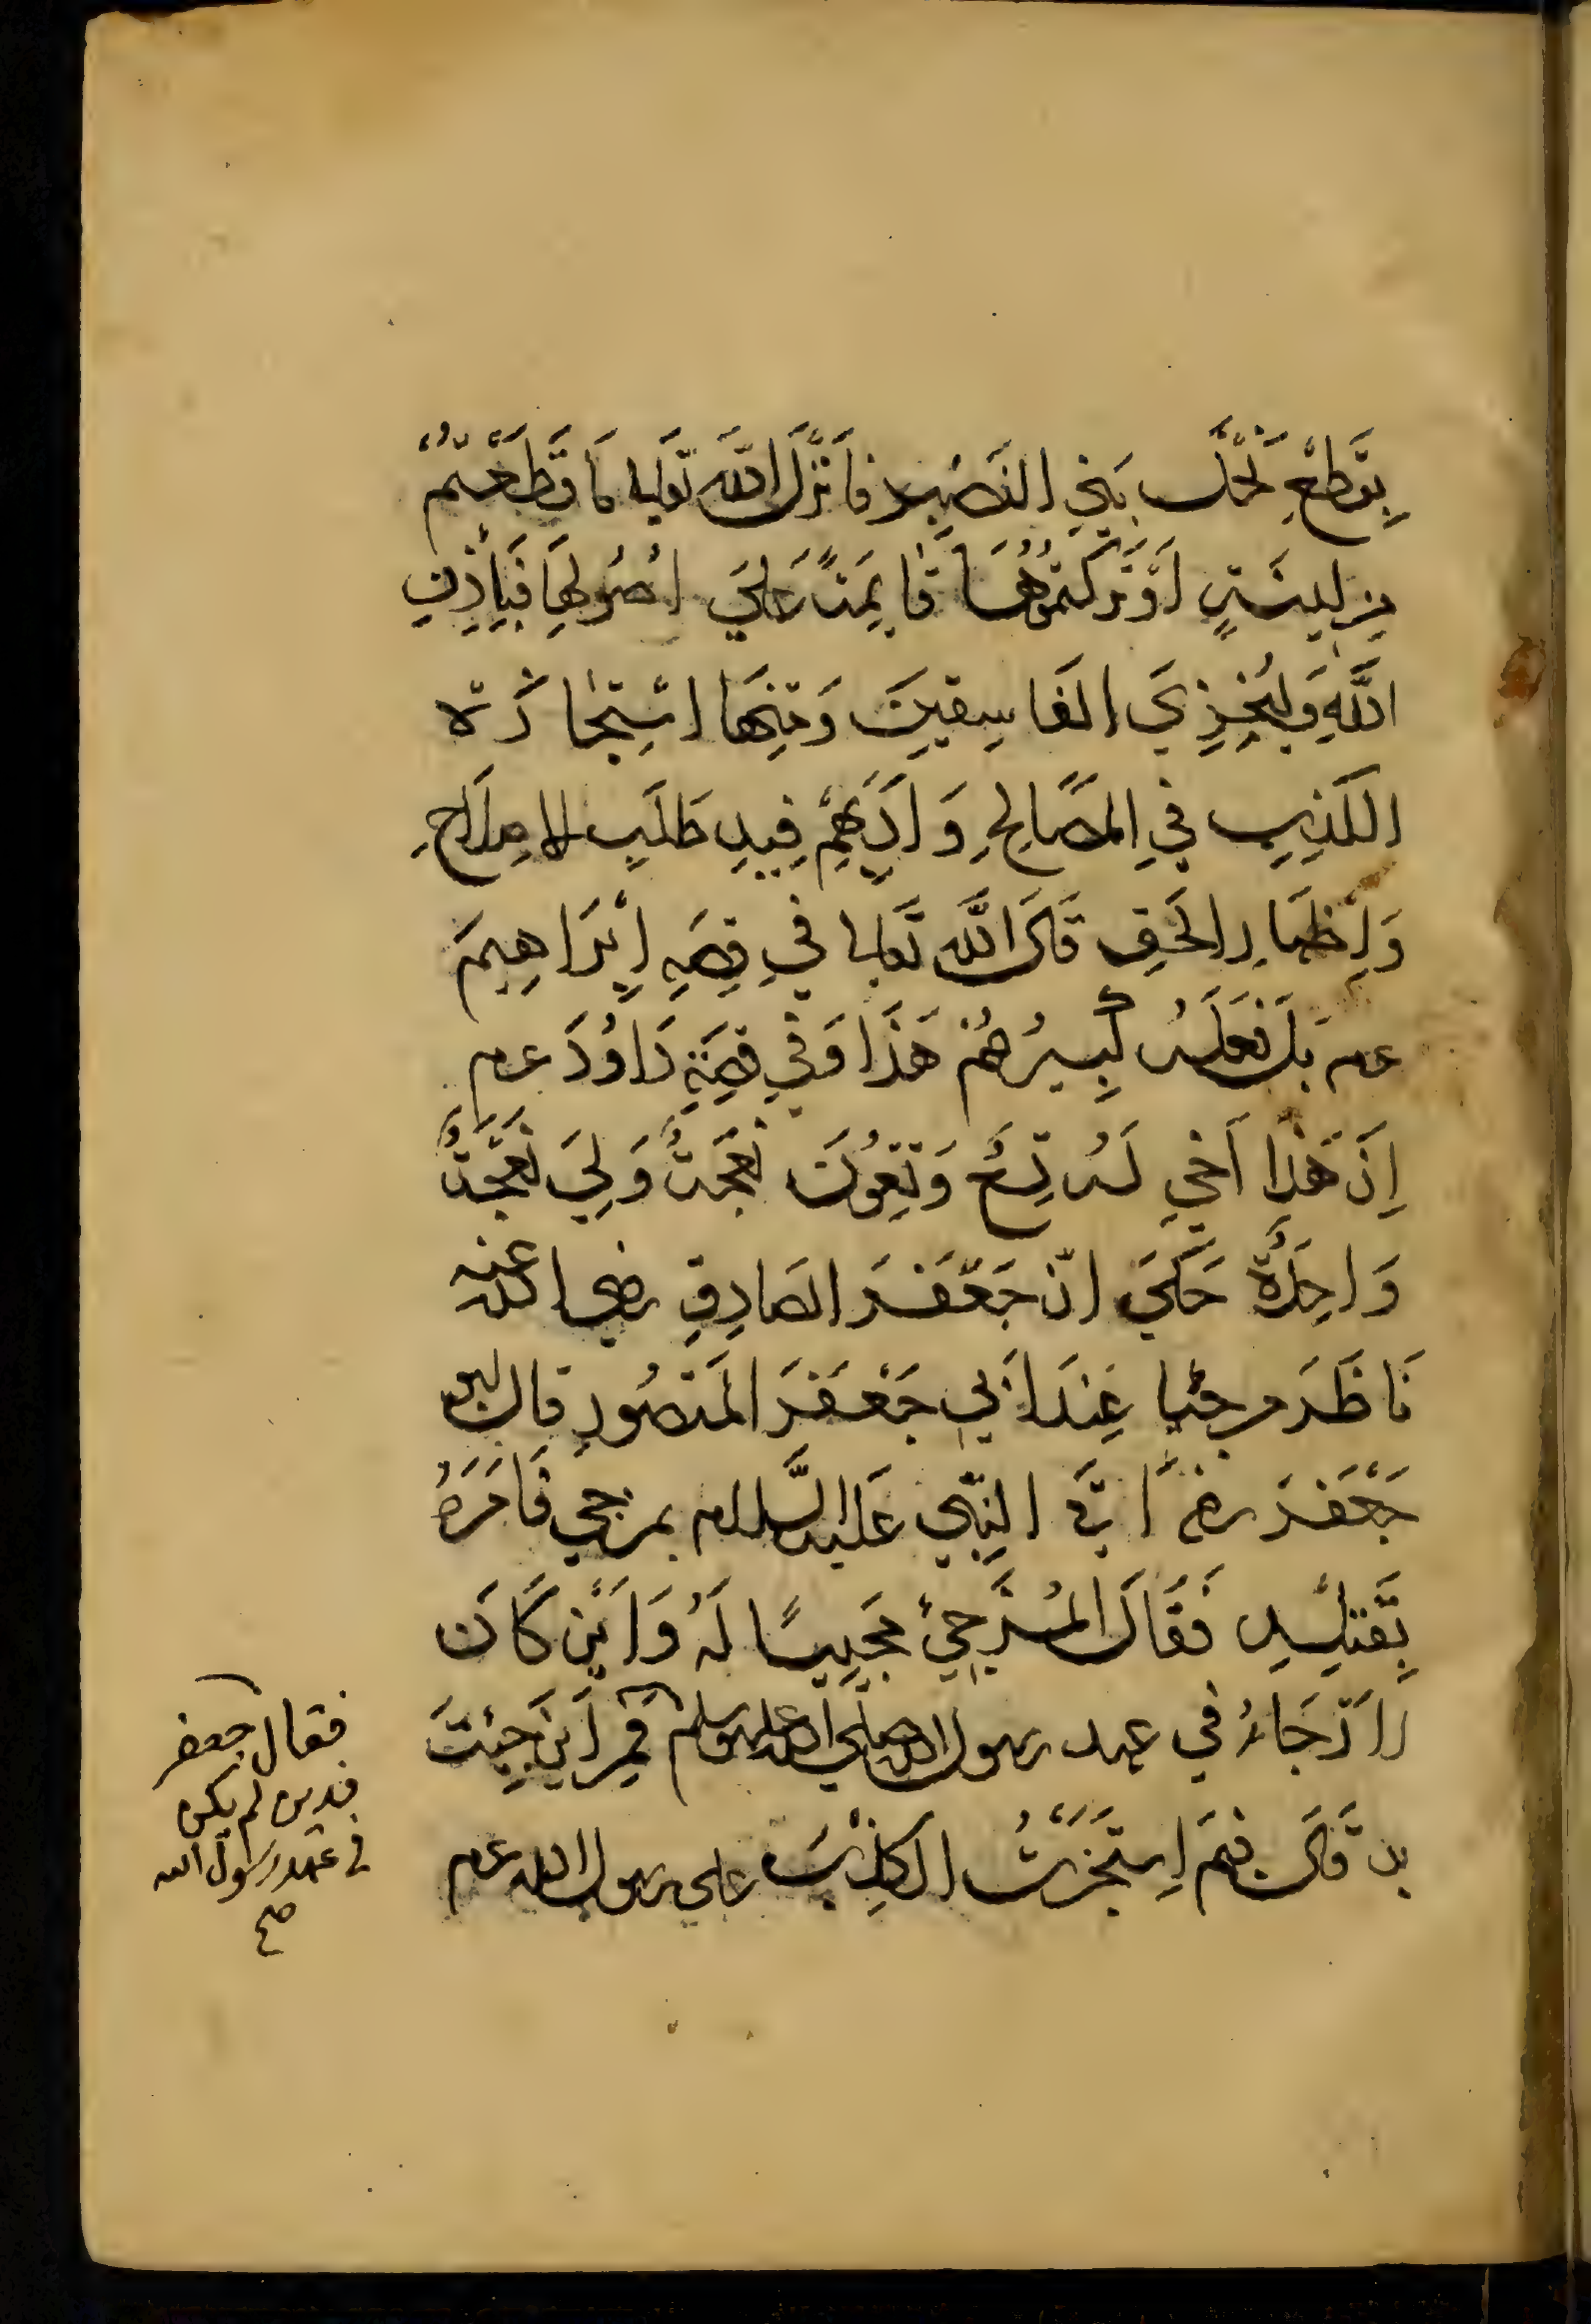 بِقَطْعِ نَخْلِ بَنِي النَضِيرِ فَاَنْزَلَ اللّٰهُ تَعَالٰى مَا قَطَعْتُمْ
مِن لِينَةٍ اَوْ تَرَكْتُمُوْهَا قَايِمَةً عَلَيَ اُصُولِهَا فَبِاِذْنِ
اللَّهِ وَلِيُخْزِيَ الفَاسِقِينَ وَمِنْهَا اسْتِجَازَة
الكَذِبِ فِي المَصَالِحِ وَاَدَبُهُمْ فِيهِ طَلَبِ الاصِلَاحِ
وَاِظْهَارِ الحَقِ قَالَ اللَّهُ تَعَالٰى في قِصَةِ اِبْرَاهِيمَ
عم بَلْ فَعَلَهُ كَبِيرُهُمْ هَذَا وَفِي قِصَّةِ دَاوُدَ عم
اِنَ هَذَا اَخِي لَهُ تِسْعٌ وَتِسْعُونَ نَعْجَةً وَلِيَ نَعْجَةٌ
وَاحِدَةٌ حَكَيَ انّ جَعْفَرَ الصَادِقِ رضي الله عنه
نَاظَرَ مرجئيا عِنْدَ اَبِي جَعْفَرَ المَنْصُورِ قال له
جَعْفَرَ رضه اُتِيَ النَبِّي عَلَيْهِ السَّلام بمرجي فَاَمَرَهُ
بِقَتْلِهِ فَقَالَ المُرْجِيُ مُجِيبًا لَهُ وَاَيْنِ كَانَ
الاَرْجَاءُ في عهد رسول الله صلي الله عليه وسلم فَمِن اَينَ جِيْتَ
به قَالَ فِيمَ اِسْتَجَزْتُ الكَذِبَ علي رسول الله عم
فقال جعفر
فدين لم يكن
في عهد رسول الله
صع